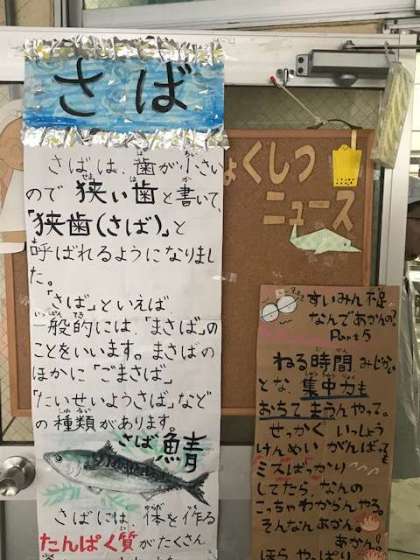 さば
さばは、歯が小さい
ので狭い歯と書いて、
「狭歯(さば)」と
呼ばれるようになりまし
た。
「さば」といえば
一般的には、「まさば」の
ことをいいます。まさばの
ほかに「ごまさば」
「たいせいようさば」など
の種類があります。
さば 鯖
さばには、体を作る
たんぱく質がたくさん
ょくしつ
ニュース
すいみん不足
なんであかんの?
Part5
ねる時間みじかい
とな、集中力も
おちてまうんやって。
せっかくいっしょう
けんめいがんばっても
ミスばっかり
してたら、なんの
こっちゃわからんやろ。
そんなんあかん。
あかん!
ほら やっぱ